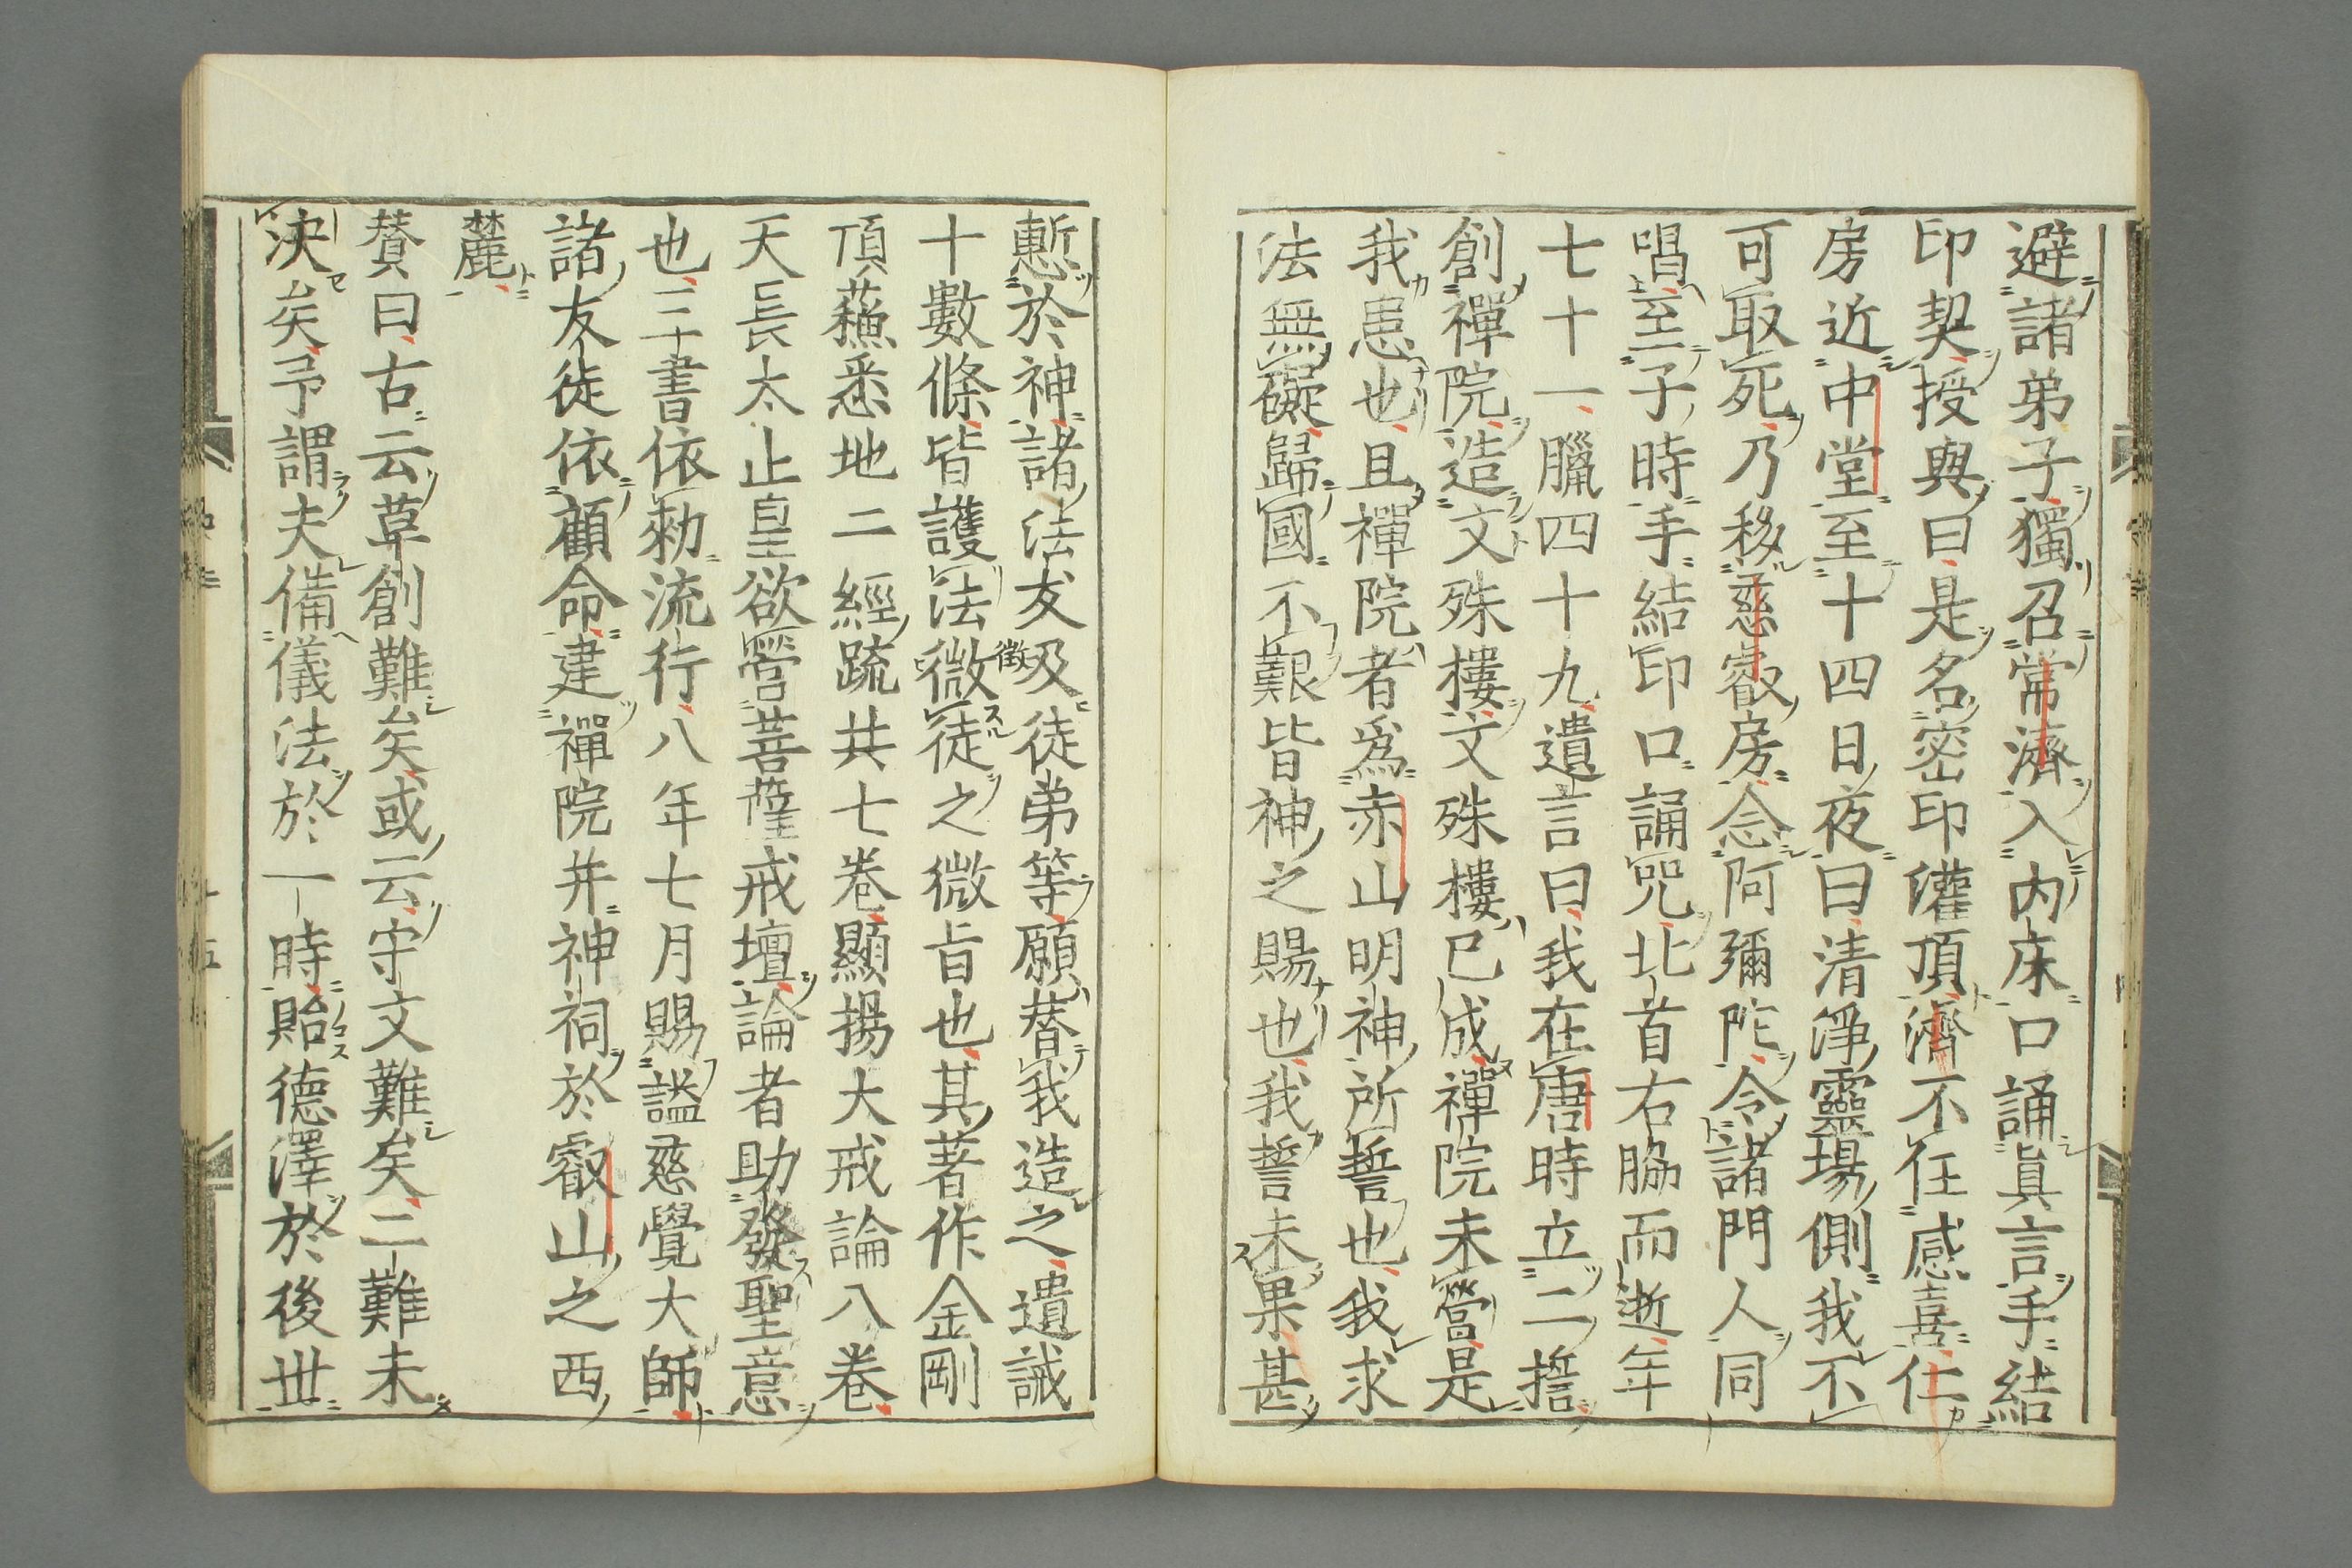 避諸弟子獨召常濟入内床口誦眞言手結
印契授與曰是名密印灌頂濟不任感喜仁
房近中堂至十四日夜曰清淨靈場側我不
可取死乃移慈叡房念阿彌陀令諸門人同
唱至子時手結印口誦咒北首右脇而逝年
七十一臘四十九遺言曰我在唐時立二誓
創禪院造文殊樓文殊樓已成禪院未營是
我恚也且禪院者爲赤山明神所誓也我求
法無礙歸國不艱皆神之賜也我誓未果甚
慙於神諸法友及徒弟等願替我造之遺誡
十數條皆護法微徒之微旨也其著作金剛
頂蘓悉地二經䟽共七卷顯揚大戒論八卷
天長太止皇欲營菩薩戒壇論者助發聖意
也三書依勑流行八年七月賜謚慈覺大師
諸友徒依顧命建禪院并神祠於叡山之西
麓
賛曰古云草創難矣或云守文難矣二難未
决矣予謂夫備儀法於一時貽德澤於後世